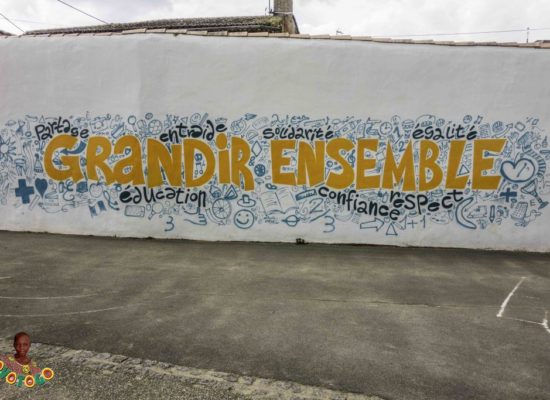 Partage entraide solidarité égalité
GRANDIR ENSEMBLE
éducation confiance respect